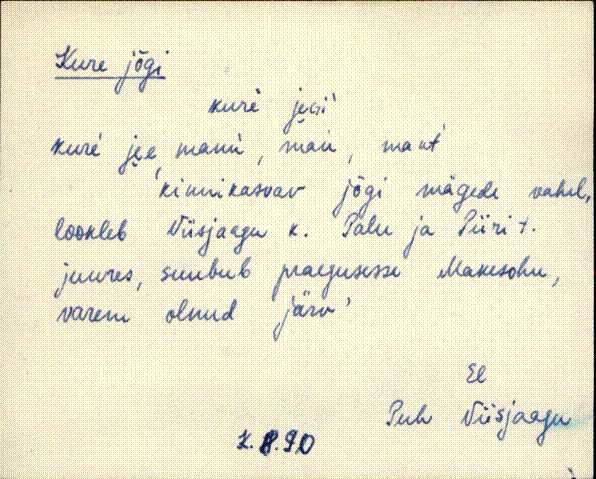 Kure jõgi
kure jegi
kure jee mann, man, mant
'kinnikasvav jõgi mägede vahel,
lookleb Viisjaagu k. Palu ja Piiri t.
juures, suubub praegusesse Makesohu,
varem olnud järv'
El
Puh Viisjaagu
K. 8.90